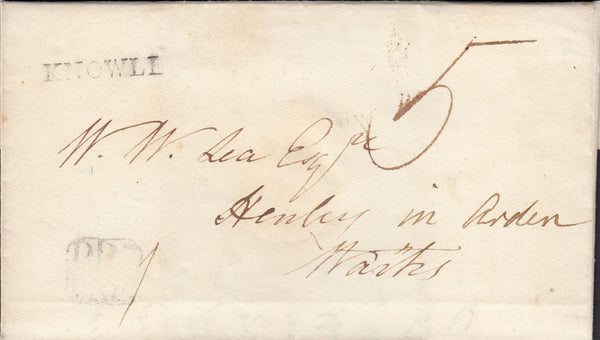 KNOWLE
5
W. W. Lea Esqre
Henley in Arden